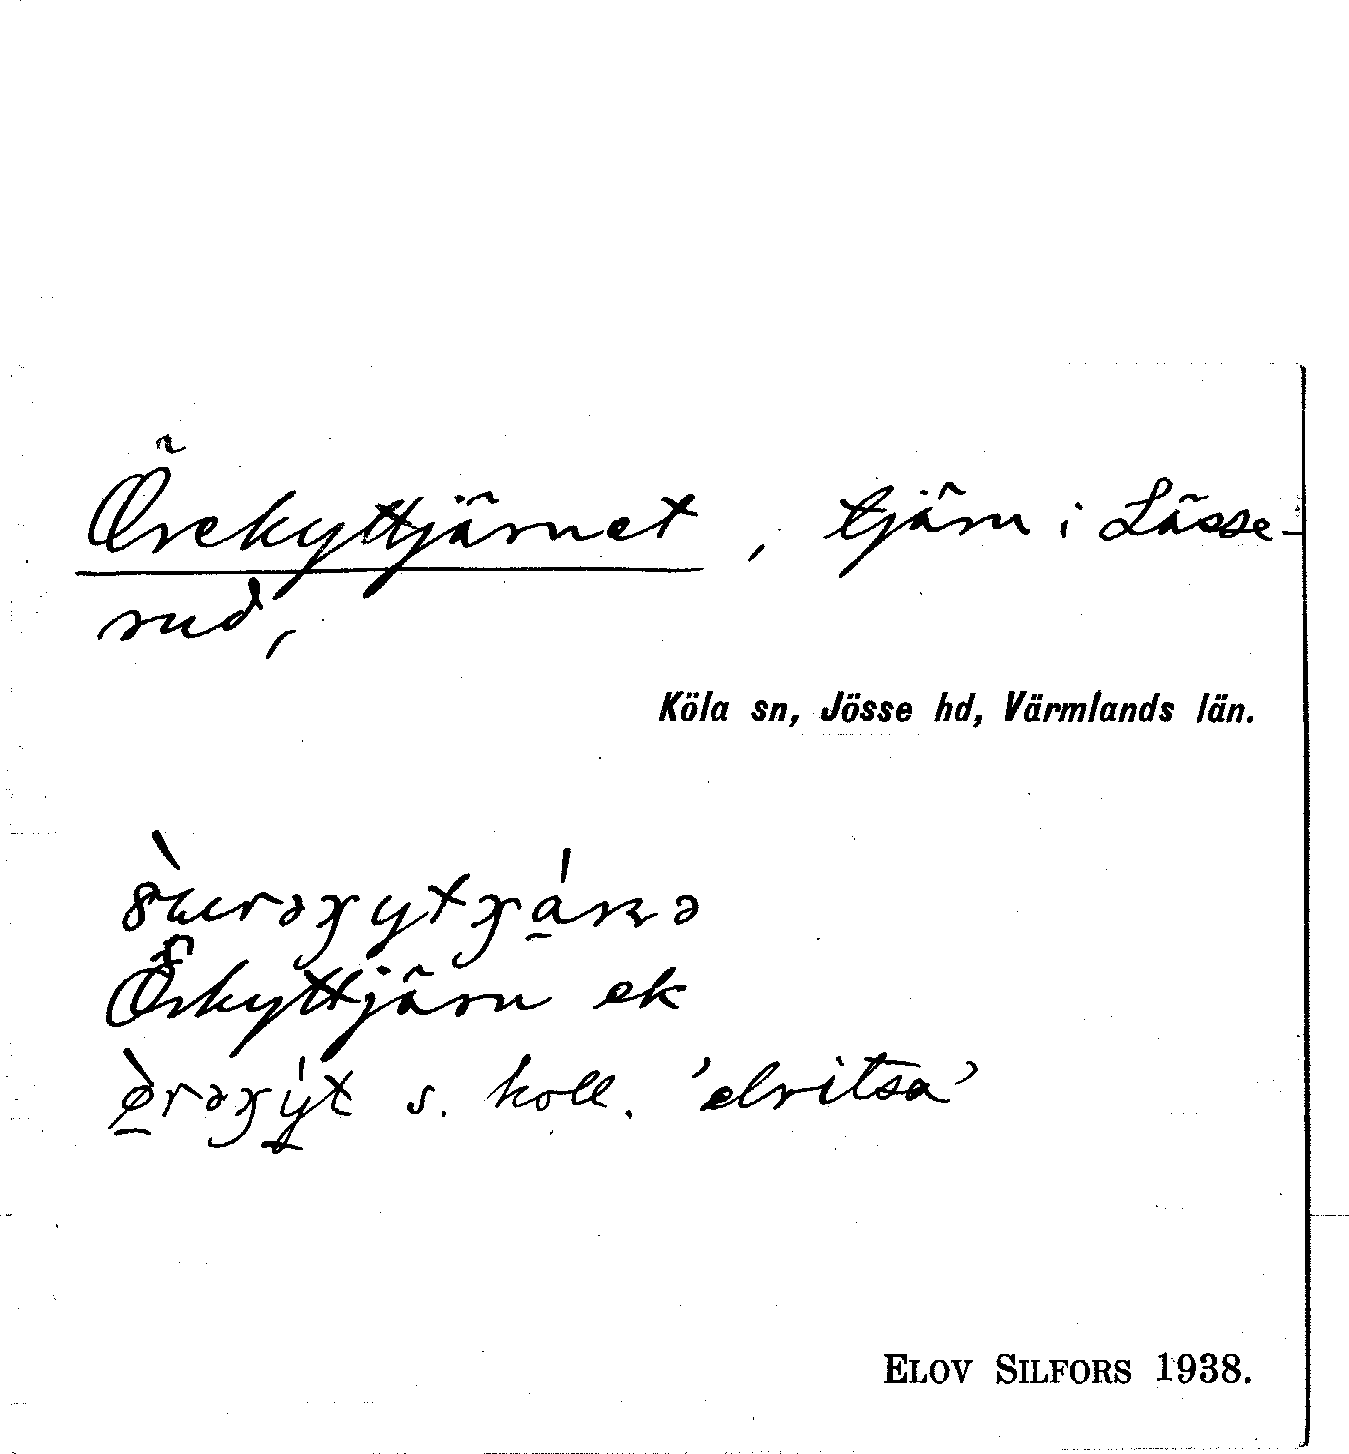 Örekyttjärnet, tjärn i Lässe-
rud,
Köla sn, Jösse hd, Värmlands län.
Örkyttjärn ek
s. koll. 'elritsa'
ELOV SILFORS 1938.